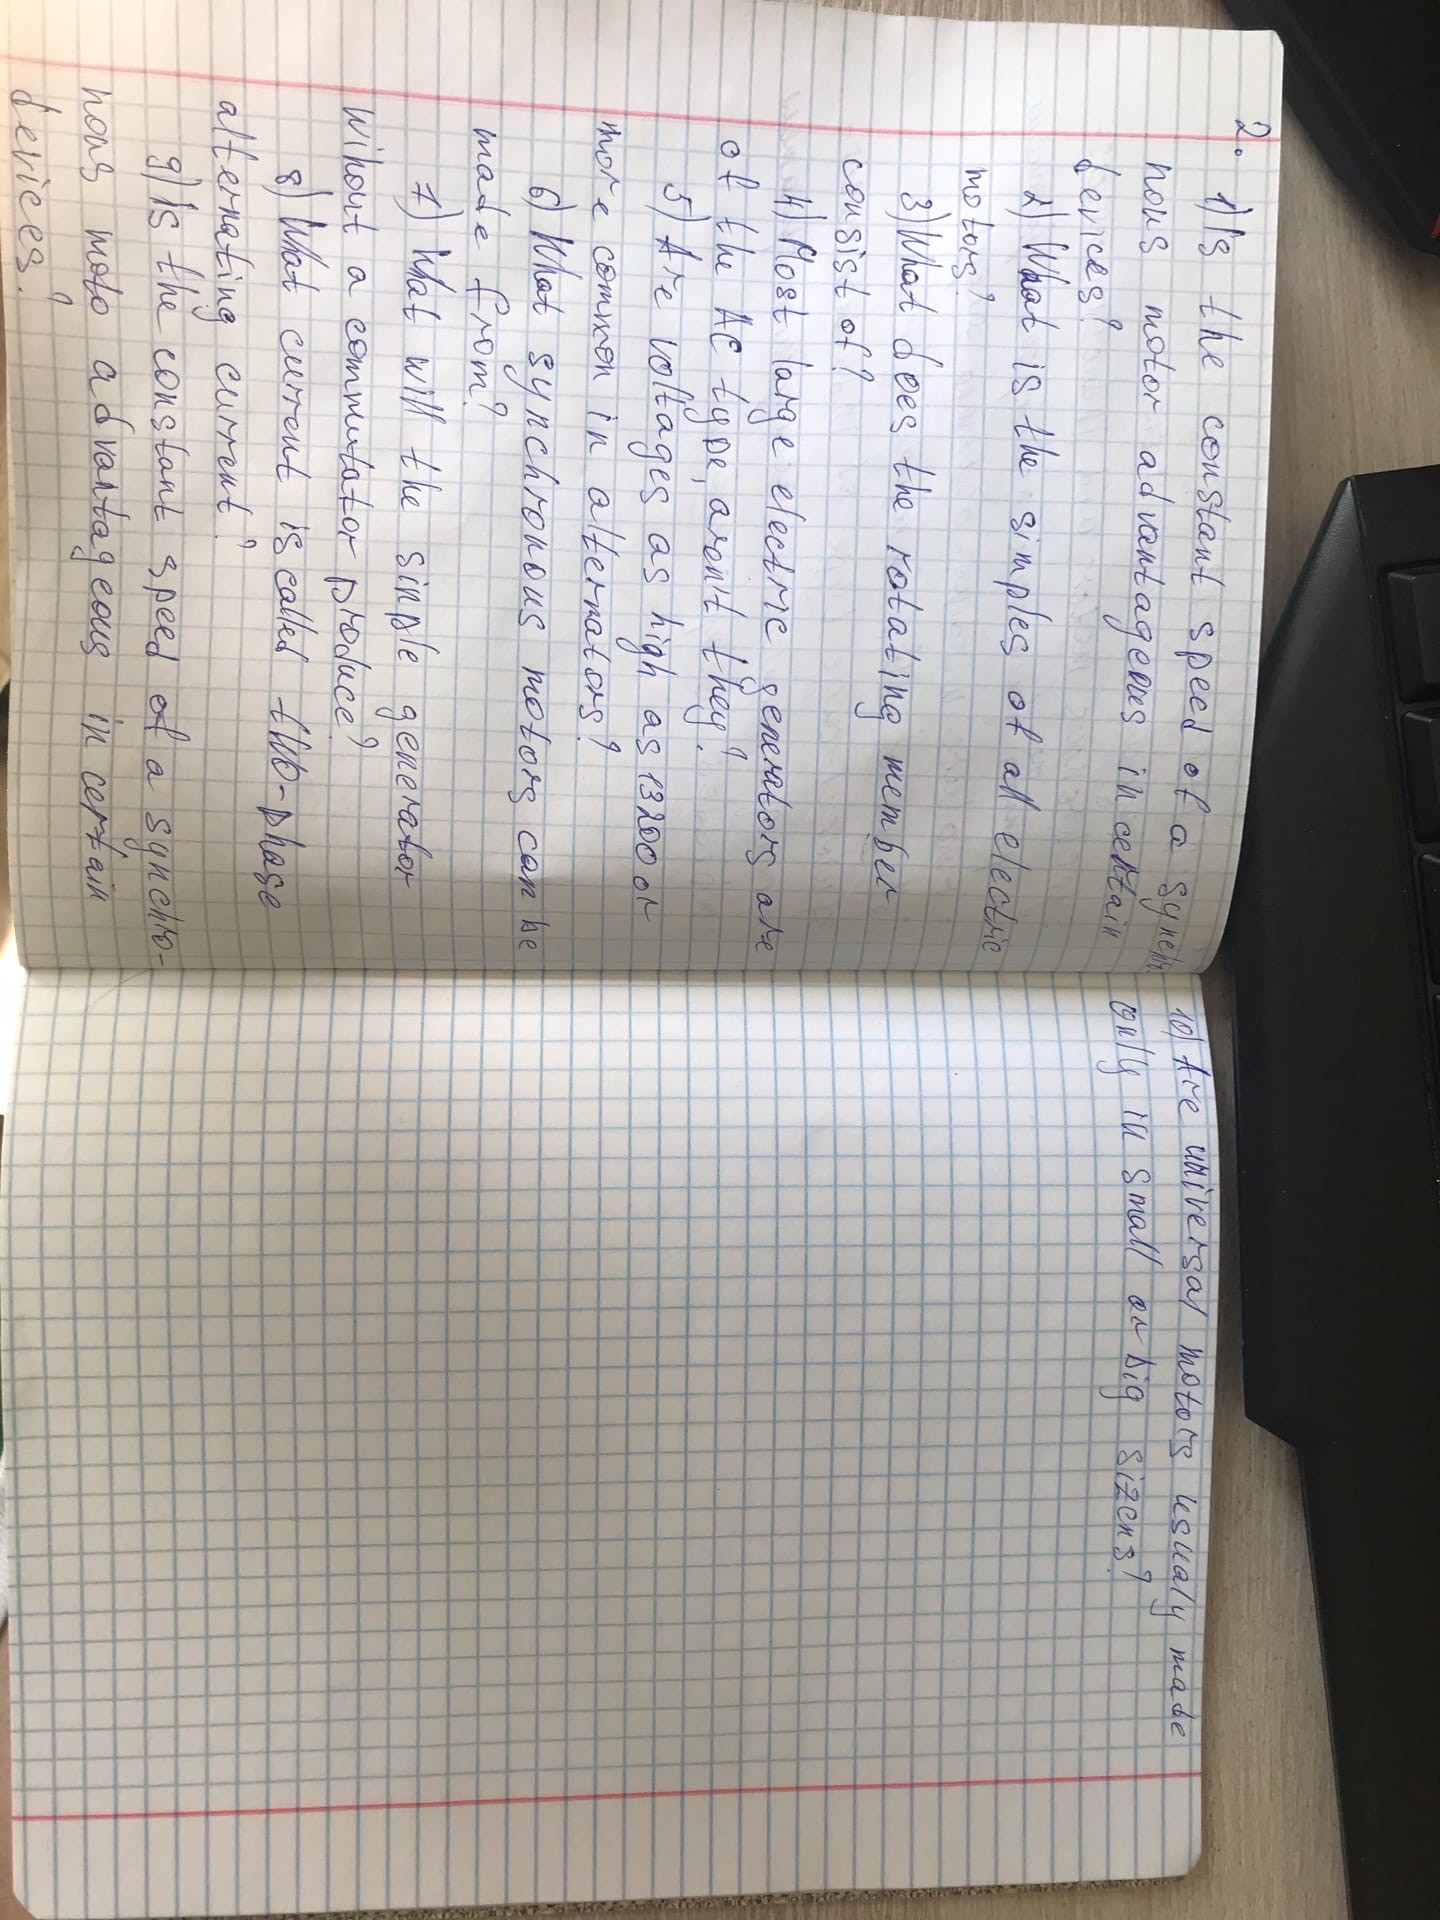 2.
1) Is the constant speed of a synchro
nous motor advantageous in certain
devices?
2) What is the simples of all electric
motors?
3) What does the rotating member
consist of?
4) Most large electric generators are
of the AC type, aront they?
5) Are voltages as high as 13200 or
more common in alternators?
6) What synchronous motors can be
made from?
7) What will the sinple generator
wihout a commutator produce?
8) What current is called two-phase
alternating current?
9) Is the constant speed of a synchro-
nous moto advantageous in certain
devices?
10) Are universal motors usualy made
only in small or big sizens?